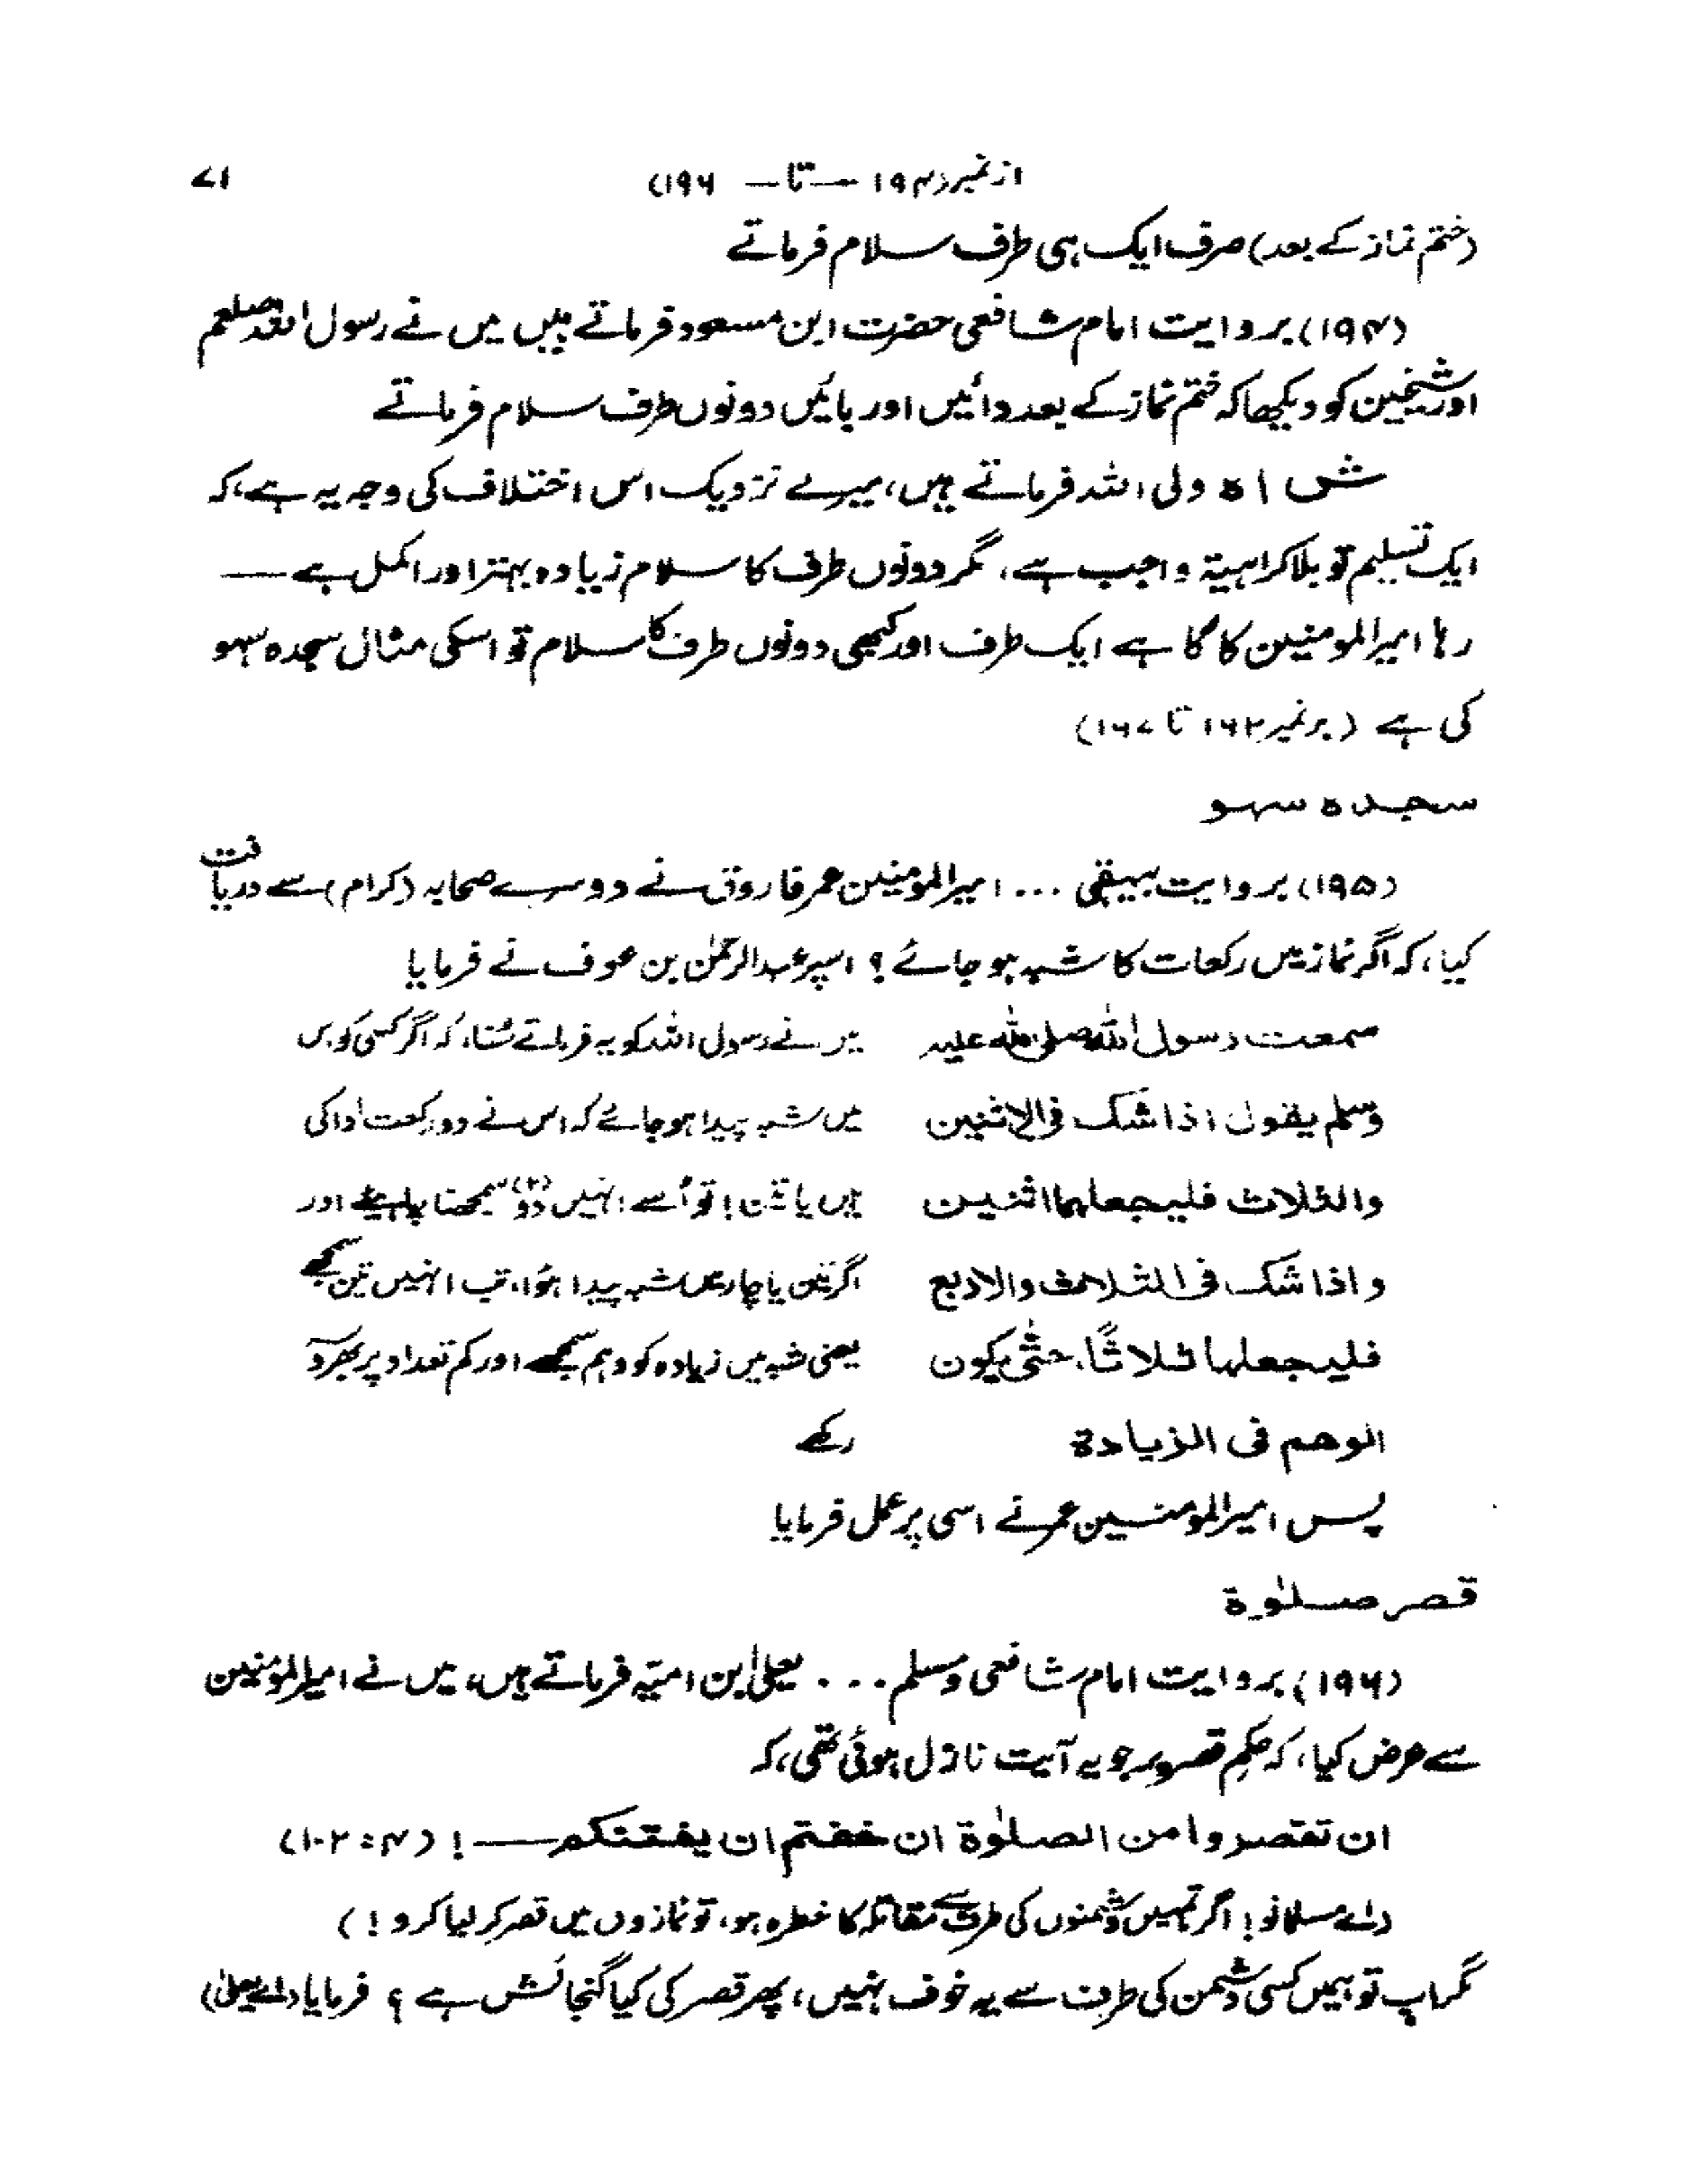 از نمبر (۱۹۴ — تا — ۱۹۶) ۷۱
(ختم نماز کے بعد) صرف ایک ہی طرف سلام فرماتے
(۱۹۴) بروایت امام شافعی حضرت ابن مسعود فرماتے ہیں میں نے رسول اللہ صلعم
اور شیخین کو دیکھا کہ ختم نماز کے بعد دائیں اور بائیں دونوں طرف سلام فرماتے
شاہ ولی اللہ فرماتے ہیں، میرے نزدیک اس اختلاف کی وجہ یہ ہے، کہ
ایک تسلیم تو بلا کراہیۃ واجب ہے، مگر دونوں طرف کا سلام زیادہ بہتر اور اکمل ہے —
رہا امیر المومنین کا گا ہے ایک طرف اور کبھی دونوں طرف کا سلام تو اسکی مثال سجدہ سہو
کی ہے (بر نمبر ۱۶۲ تا ۱۶۷)
سجدہ سہو
(۱۹۵) بروایت بیہقی ... امیر المومنین عمر فاروق نے دوسرے صحابہ (کرام) سے دریافت
کیا، کہ اگر نماز میں رکعات کا شبہ ہو جائے؟ اسپر عبدالرحمٰن بن عوف نے فرمایا
سمعت رسول اللہ صلی اللہ علیہ میں نے رسول اللہ کو یہ فرماتے سُنا، کہ اگر کسی کو
وسلم یقول اذا شک فی الاثنین میں شبہ پیدا ہو جائے کہ اس نے دو رکعت ادا کی
والثلاث فلیجعلہما اثنین ہیں یا تین! تو اُسے انہیں دو (۲) سمجھنا چاہیئے اور
واذا شک فی الثلاث والاربع اگر تین یا چار میں شبہ پیدا ہُوا، تب انہیں تین سمجھے
فلیجعلہا ثلاثًا، حتّٰی یکون یعنی شبہ میں زیادہ کو وہم سمجھے اور کم تعداد پر
الوھم فی الزیادۃ رکھے
پس امیر المومنین عمر نے اسی پر عمل فرمایا
قصر صلوٰۃ
(۱۹۶) بروایت امام شافعی ومسلم ... یعلیٰ بن امیّہ فرماتے ہیں، میں نے امیر المومنین
سے عرض کیا، کہ حکم قصر پر جو یہ آیت نازل ہوئی تھی، کہ
ان تقصروا من الصلوٰۃ ان خفتم ان یفتنکم —! (۴ : ۱۰۲)
(اے مسلمانو! اگر تمہیں دشمنوں کی طرف سے مقاتلہ کا خطرہ ہو، تو نمازوں میں قصر کر لیا کرو!)
مگر اب تو ہمیں کسی دشمن کی طرف سے یہ خوف نہیں، پھر قصر کی کیا گنجائش ہے؟ فرمایا (اے یعلیٰ)